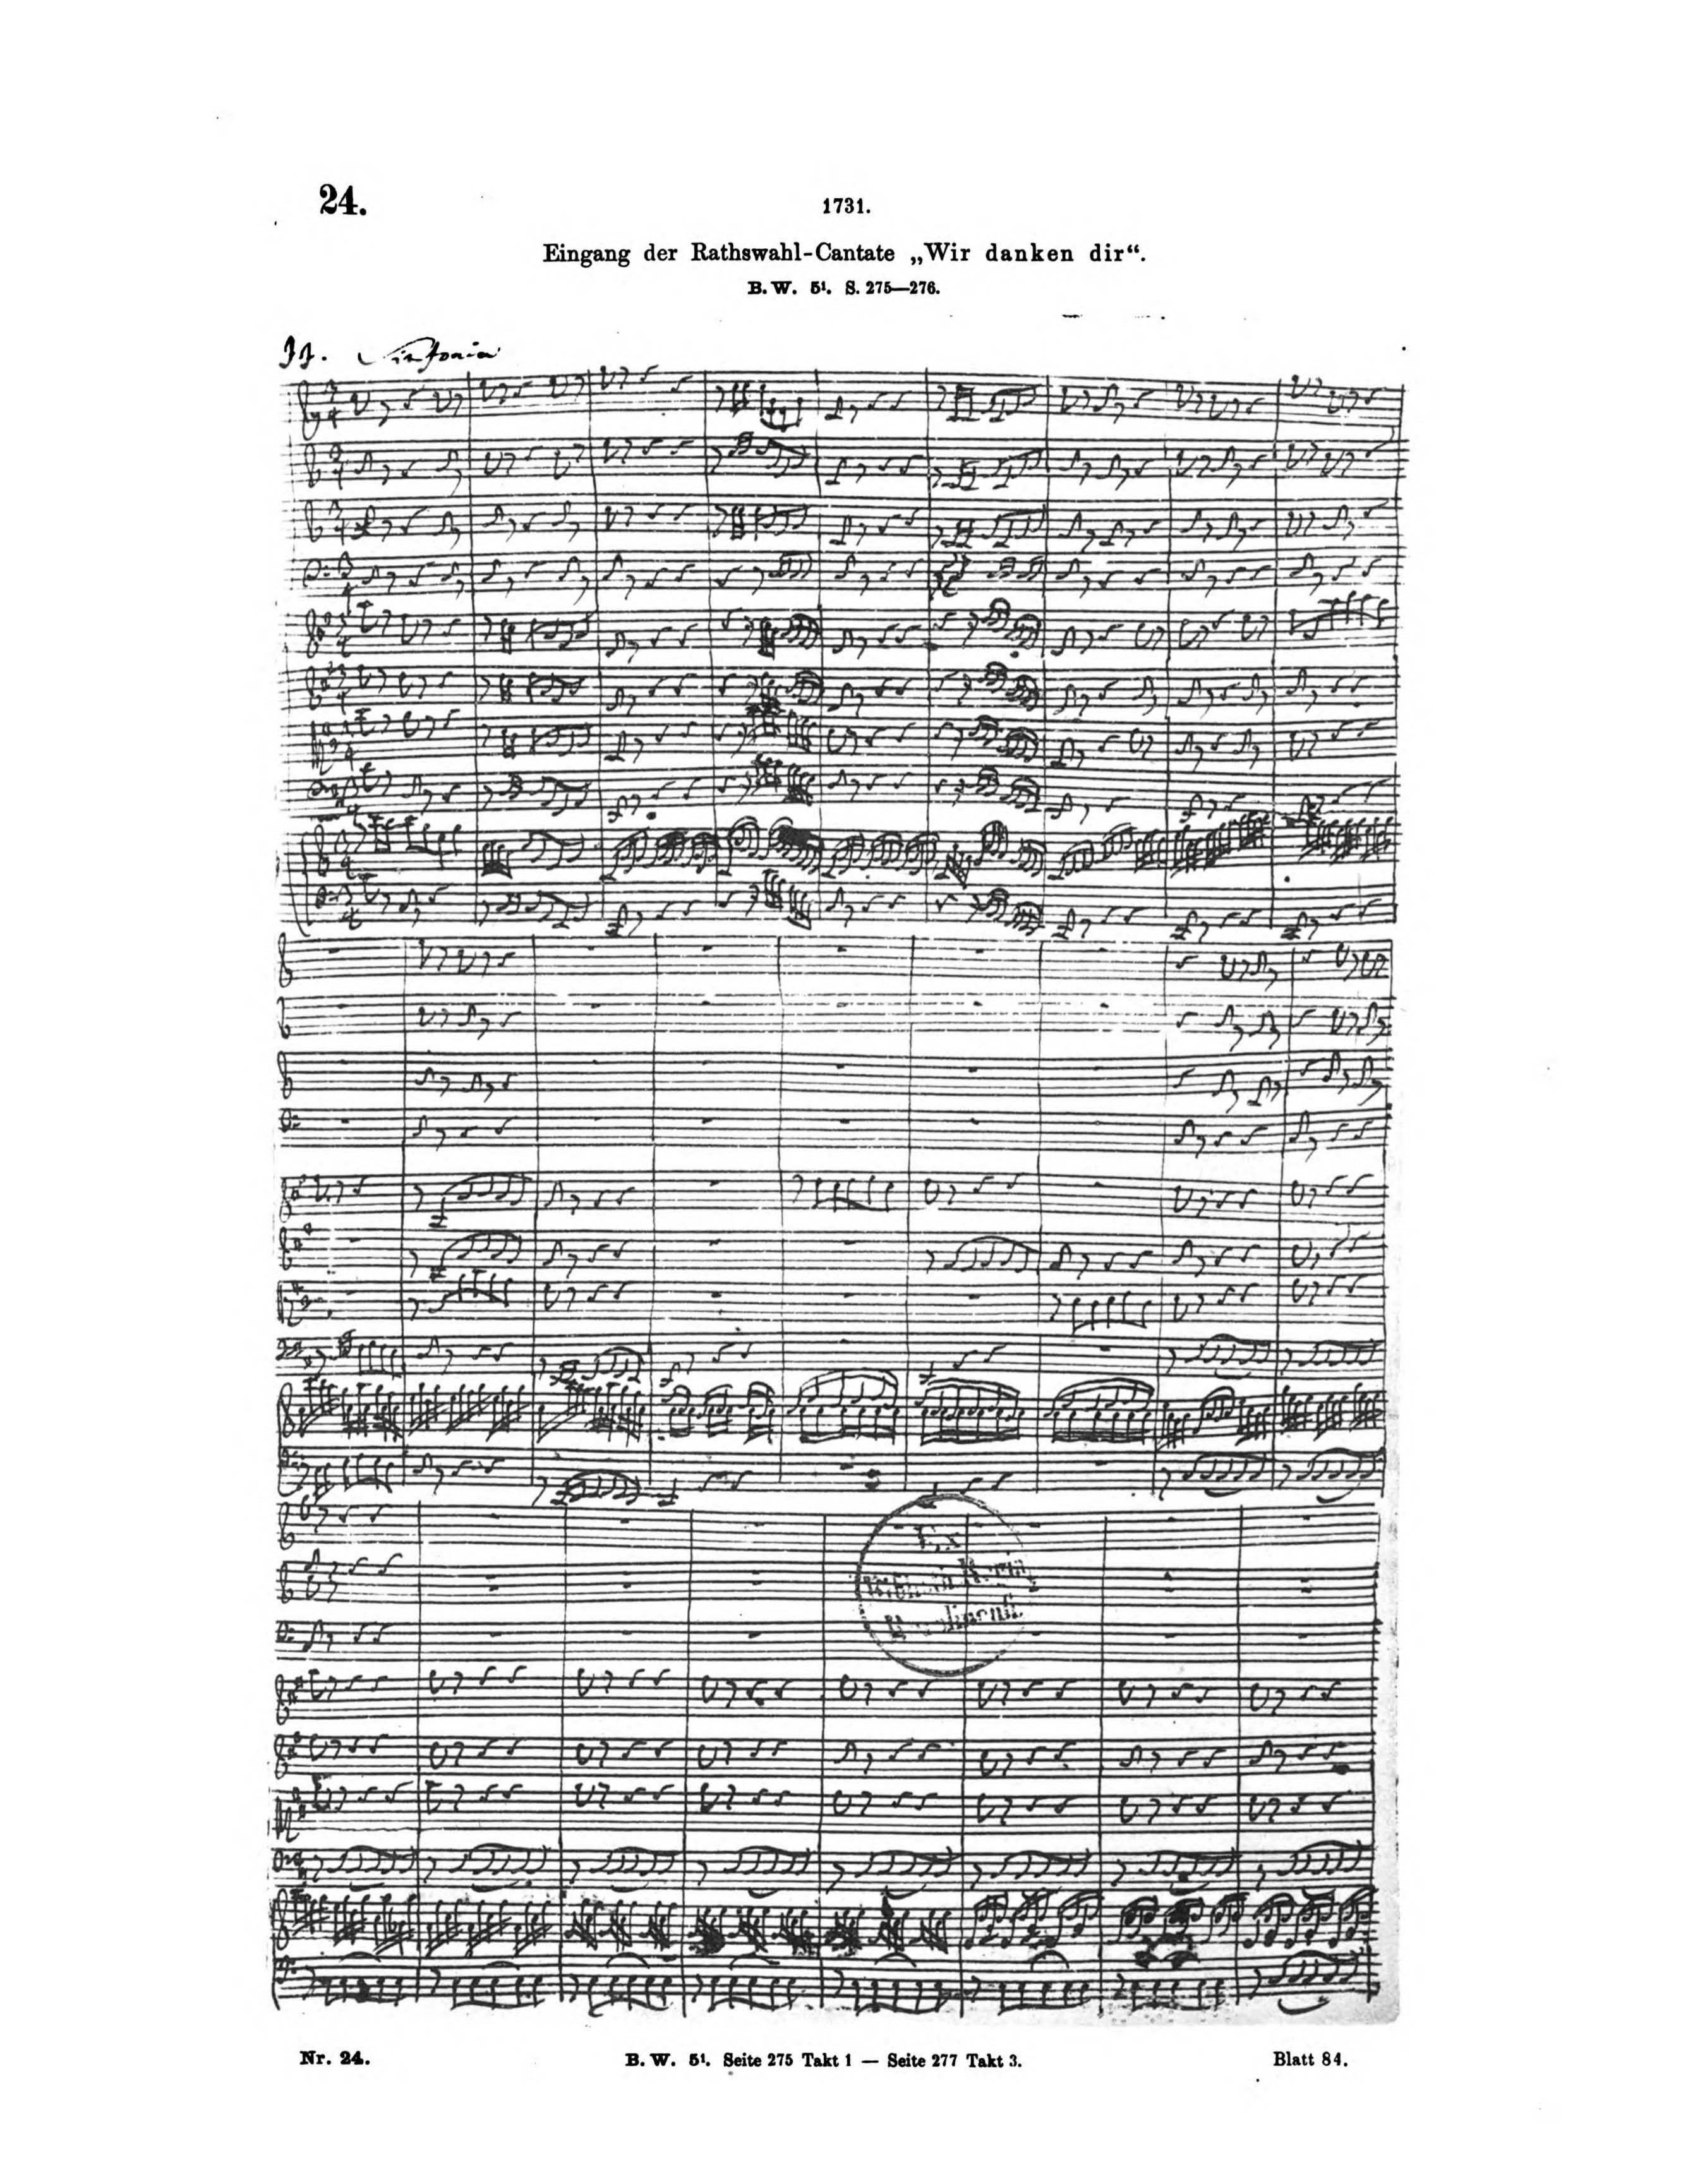 24.
1731.
Eingang der Rathswahl-Cantate „Wir danken dir“.
B. W. 5¹. S. 275—276.
J J. Sinfonia
Nr. 24.
B. W. 5¹. Seite 275 Takt 1 — Seite 277 Takt 3.
Blatt 84.